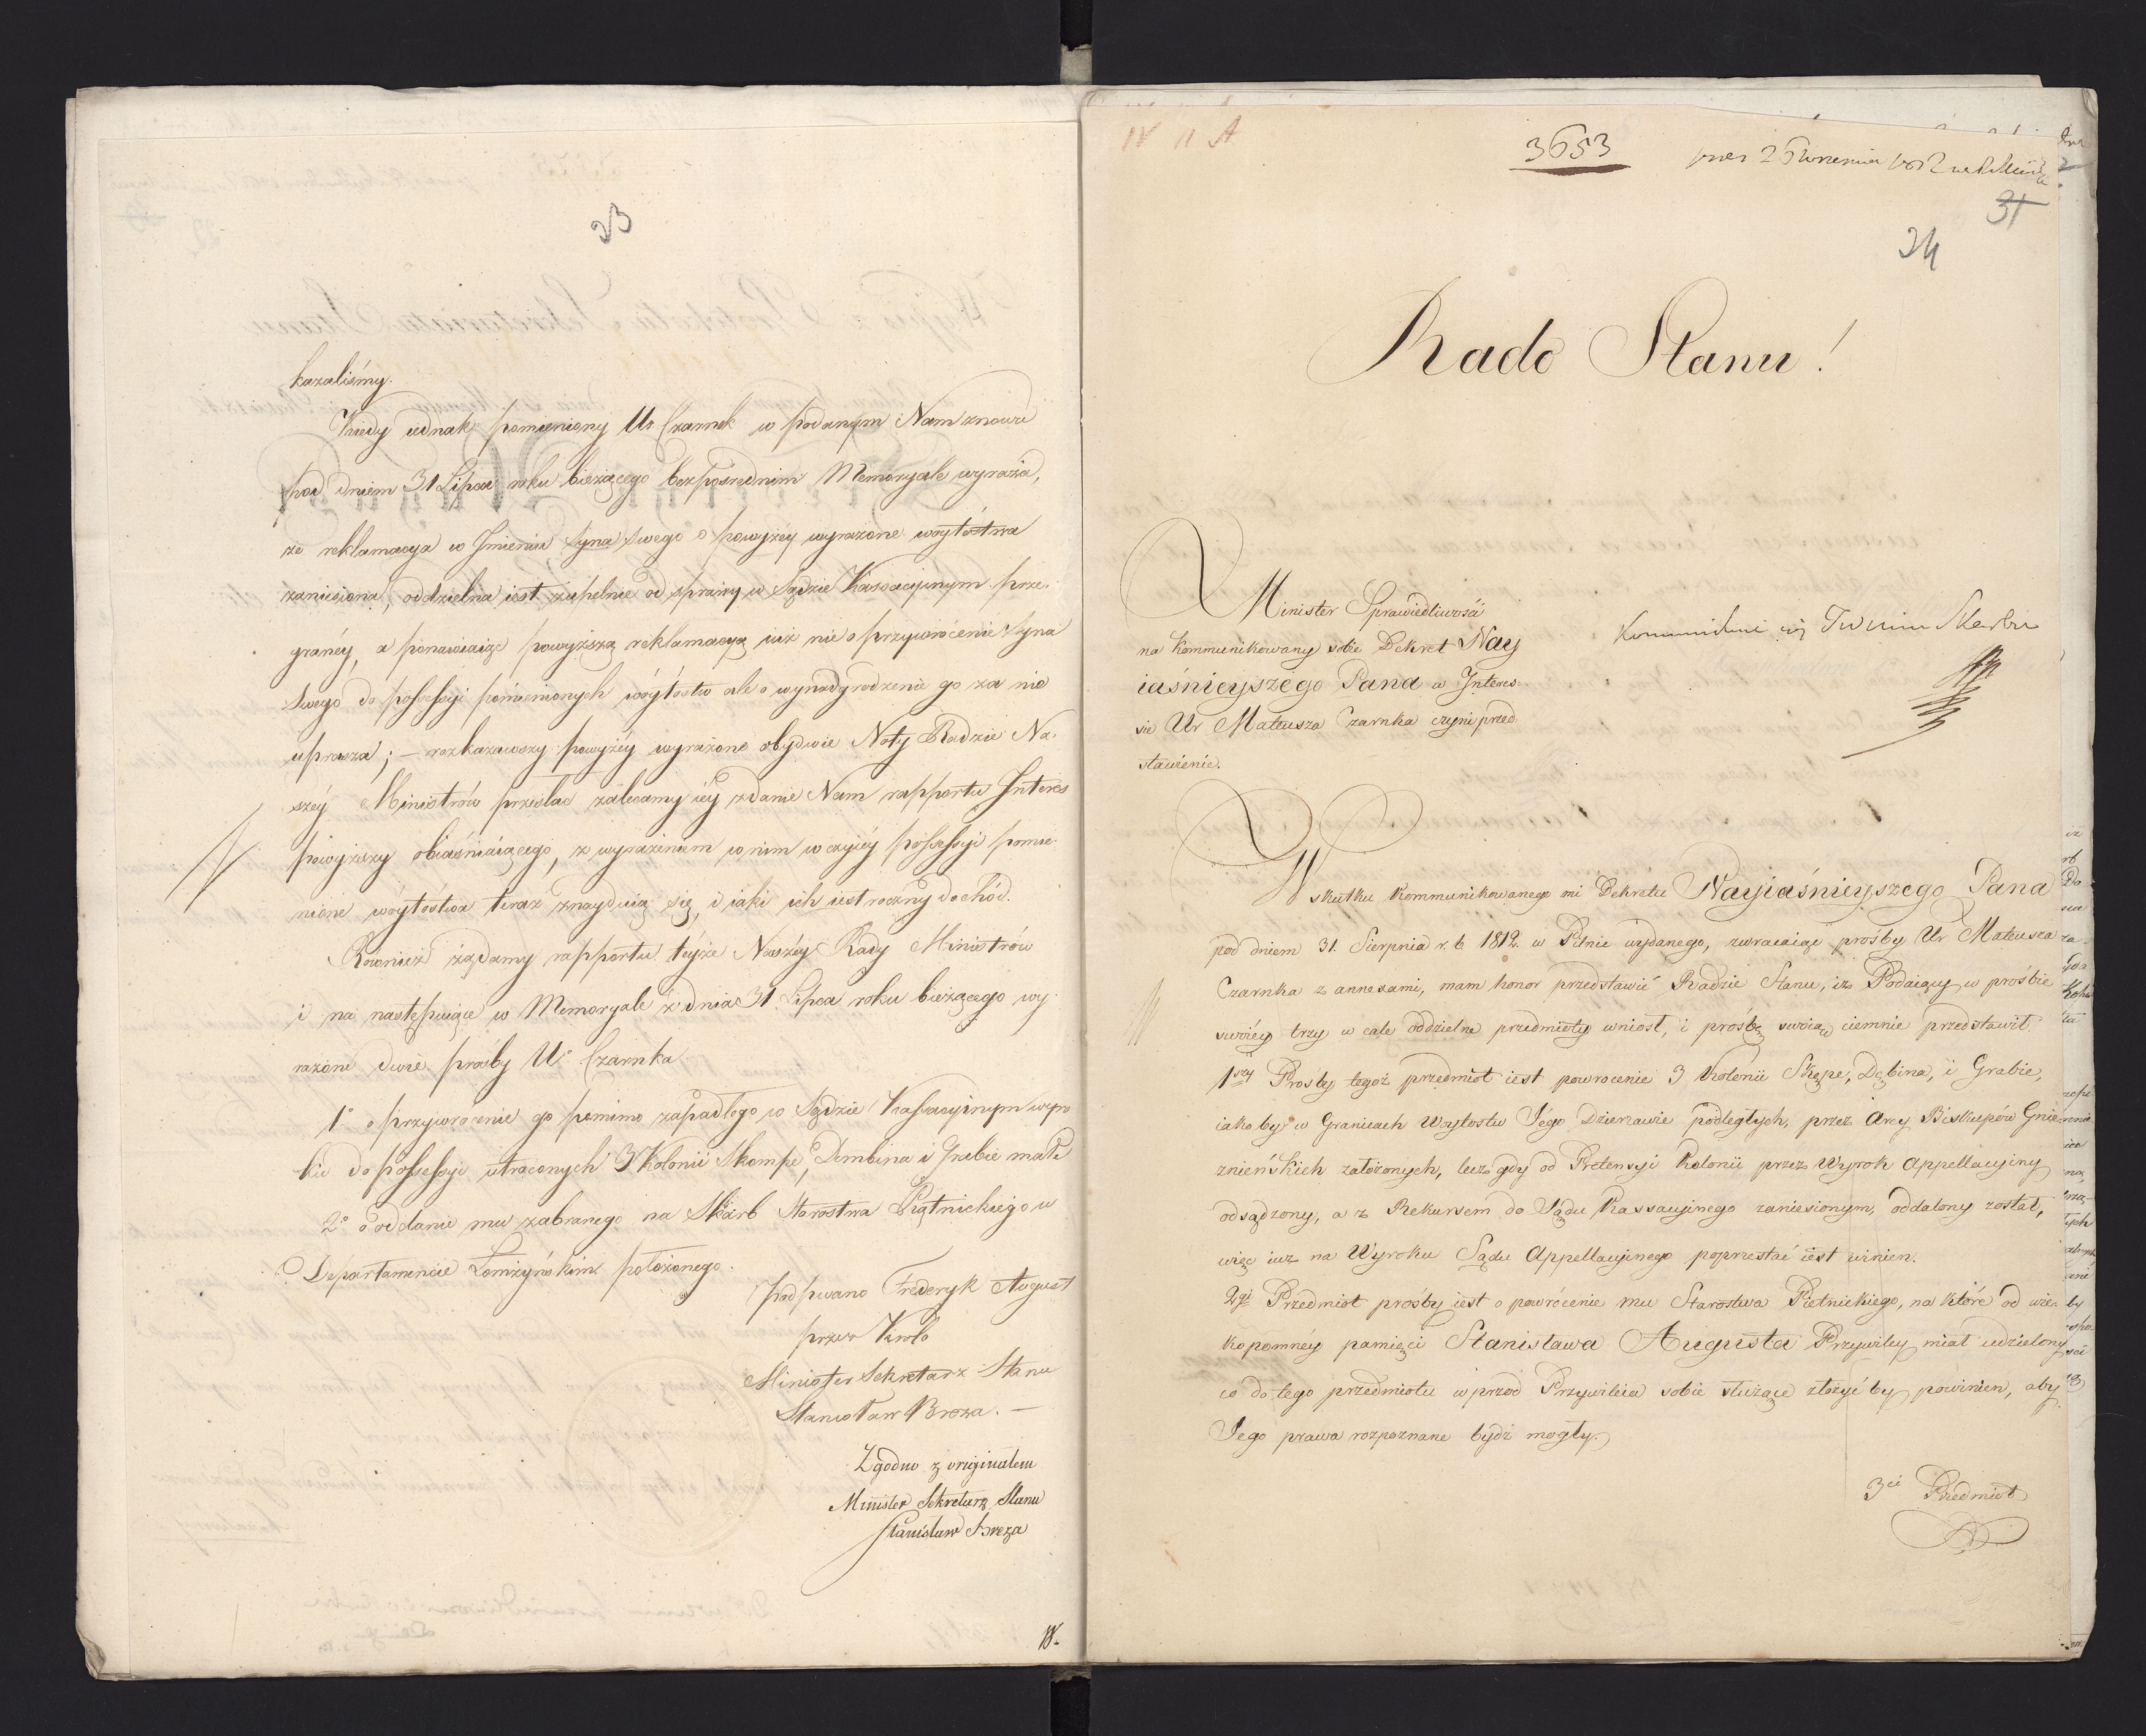 23
kazaliśmy.
Kiedy iednak pomieniony Ur Czarnek w podanym Nam znowu
pod dniem 31 Lipca roku bieżącego bezpośrednim Memoryale wyraża,
że reklamacya w Imieniu Syna swego o powyżey wyrażone woytostwa
zaniesiona, oddzielna iest zupełnie od sprawy w Sądzie Kassacyinym prze-
graney, a ponawiaiąc powyższą reklamacyą iuż nie o przywrócenie Syna
swego do possessyi pomienionych wóytostw ale o wynadgrodzenie go za nie
uprasza; – rozkazawszy powyżey wyrażone obydwie Noty Radzie Na-
széy Ministrów przesłać zalecamy iéy zdanie Nam rapportu Interes
powyższy obiaśniaiącego, z wyrażeniem w nim w czyiéy possessyi pomie-
nione wóytostwa teraz znayduią się, i iaki ich iest roczny dochód.
Rownież żądamy rapportu téyże Naszéy Rady Ministrów
i na następuiące w Memoryale z dnia 31 Lipca roku bieżącego wy-
rażone dwie prosby Ur Czarnka.
1° o przywrócenie go pomimo zapadłego w Sądzie Kassacyinym wyro-
ku do possessyi utraconych 3 Kolonii Skompe, Dembina i Grabie małe
2° o oddanie mu zabranego na Skarb Starostwa Piątnickiego w
Departamencie Łomżyńskim położonego.
Podpisano Frederyk August
przez Króla
Minister Sekretarz Stanu
Stanisław Breza. –
Zgodno z originałem
Minister Sekretarz Stanu
Stanisław Breza
W.
IV II A
3653
31
24
Rado Stanu!
Minister Sprawiedliwości
na kommunikowany sobie Dekret Nay
iaśnieyszego Pana w Interes-
sie Ur Mateusza Czarnka czyni przed-
stawienie.
Skarbu
W skutku kommunikowanego mi Dekretu Nayiaśnieyszego Pana
pod dniem 31. Sierpnia r. b. 1812. w Pilnic wydanego, zwracaiąc prośby Ur Mateusza
Czarnka z annexami, mam honor przedstawić Radzie Stanu, iż Podaiący w prośbie
swoiéy trzy w cale oddzielne przedmioty wniosł, i prośbę swoią ciemnie przedstawił.
1szy Prośby tegoż przedmiot iest powrocenie 3 Kolonii Skąpe, Dąbina, i Grabie,
iakoby w Granicach Woytostw Jégo Dzierzawie podległych, przez Arcy Biskupów Gnie-
znieńskich założonych, lecz gdy od Pretensyi Kolonii przez Wyrok Appellacyiny
odsądzony, a z Rekursem do Sądu Kassacyinego zaniesionym, oddalony został,
więc iuż na Wyroku Sądu Appellacyinego poprzestać iest winien.
2gi Przedmiot prośby iest o powrócenie mu Starostwa Pietnickiego, na które od wie-
kopomnéy pamięci Stanisława Augusta Przywiley miał udzielony
co do tego przedmiotu wprzod Przywileia sobie służące złożyć by powinien, aby
Jego prawa rozpoznane bydź mogły.
3ci Przedmiot